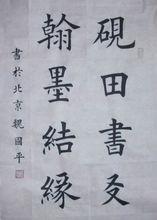 硯田書友
翰墨結緣
書於北京魏國平